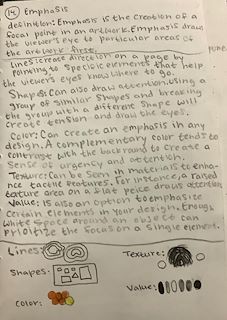 14) Emphasis
definition: Emphasis is the creation of a
focal point in an artwork. Emphasis draws
the viewer's eye to particular areas of
the artwork first.
Lines: create direction on a page by
pointing to specific elements that help
the viewer's eyes know where to go.
Shapes: Can also draw attention. using a
group of similar shapes and breaking
the group with a different shape will
create tension and draw the eye.
Color: Can create an emphasis in any
design. A complementary color tends to
contrast with the background to create a
sense of urgency and attention.
Texture: Can be seen in materials to enha-
nce tactile features. For instance, a raised
texture area on a flat peice draws attention.
Value: Is also an option to emphasize
certain elements in your design. Enough
white space around an object can
prioitize the focus on a single element.
Lines:
Texture:
Shapes:
Value:
Color: